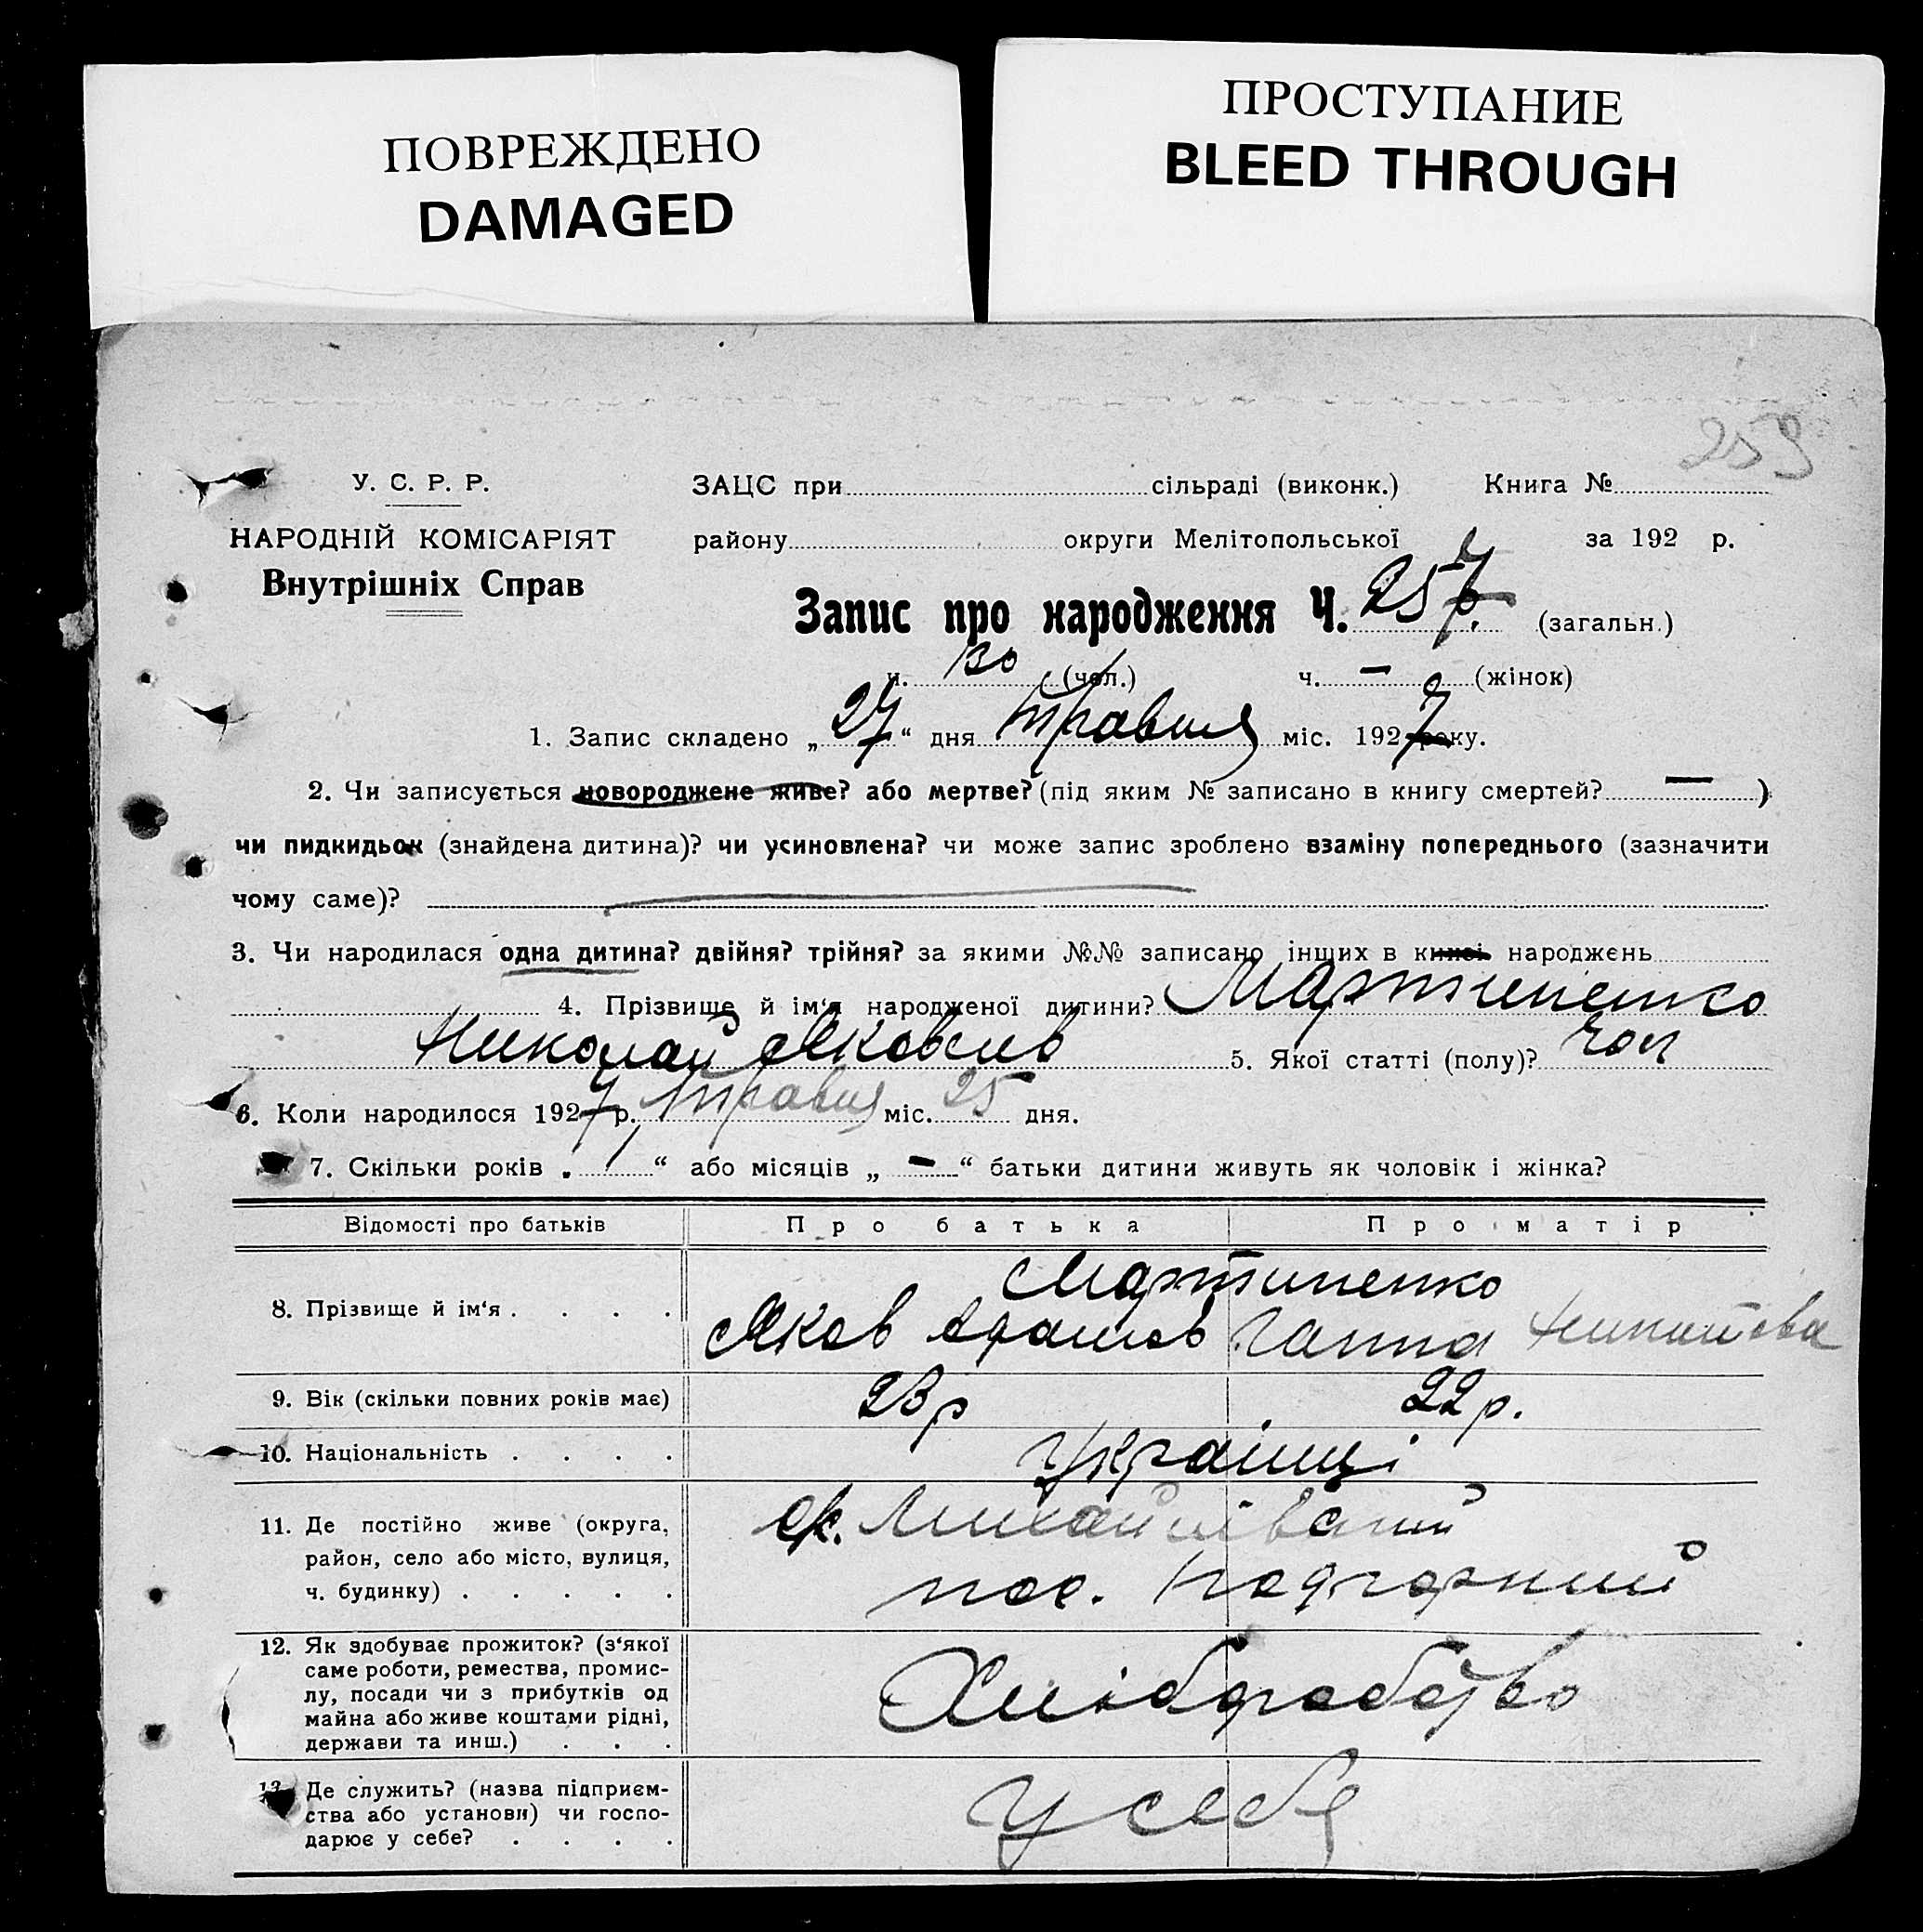 ПОВРЕЖДЕНО
DAMAGED
ПРОСТУПАНИЕ
BLEED THROUGH
259
У. С. Р. Р.
НАРОДНІЙ КОМІСАРІЯТ
Внутрішніх Справ
ЗАЦС при сільраді (виконк.) Книга №
району округи Мелітопольської за 192 р.
Запис про народження Ч. 257 (загальн.)
ч. 130 (чол.) ч. — (жінок)
1. Запис складено „27“ дня Травня міс. 1927 року.
2. Чи записується новороджене живе? або мертве? (під яким № записано в книгу смертей? — )
чи пидкидьок (знайдена дитина)? чи усиновлена? чи може запис зроблено взаміну попереднього (зазначити
чому саме)?
3. Чи народилася одна дитина? двійня? трійня? за якими №№ записано інших в книзі народжень
4. Прізвище й ім‘я народженої дитини? Мартиненко
Николай Яковлев 5. Якої статті (полу)? чол
6. Коли народилося 1927 р. Травня міс. 25 дня.
7. Скільки років „ 1 “ або місяців „ — “ батьки дитини живуть як чоловік і жінка?
Відомості про батьків Про батька Про матір
8. Прізвище й ім‘я . . . . Мартиненко
Яков Ганна
9. Вік (скільки повних років має) 23 р 22 р.
10. Національність . . . . Українці
11. Де постійно живе (округа,
район, село або місто, вулиця,
ч. будинку) . . . . .
Михайлівський
пос. Подгорний
12. Як здобуває прожиток? (з‘якої
саме роботи, ремества, промис-
лу, посади чи з прибутків од
майна або живе коштами рідні,
держави та инш.) . . .
Хліборобство
13. Де служить? (назва підприєм-
ства або установи) чи госпо-
дарює у себе? . . . .
У себя